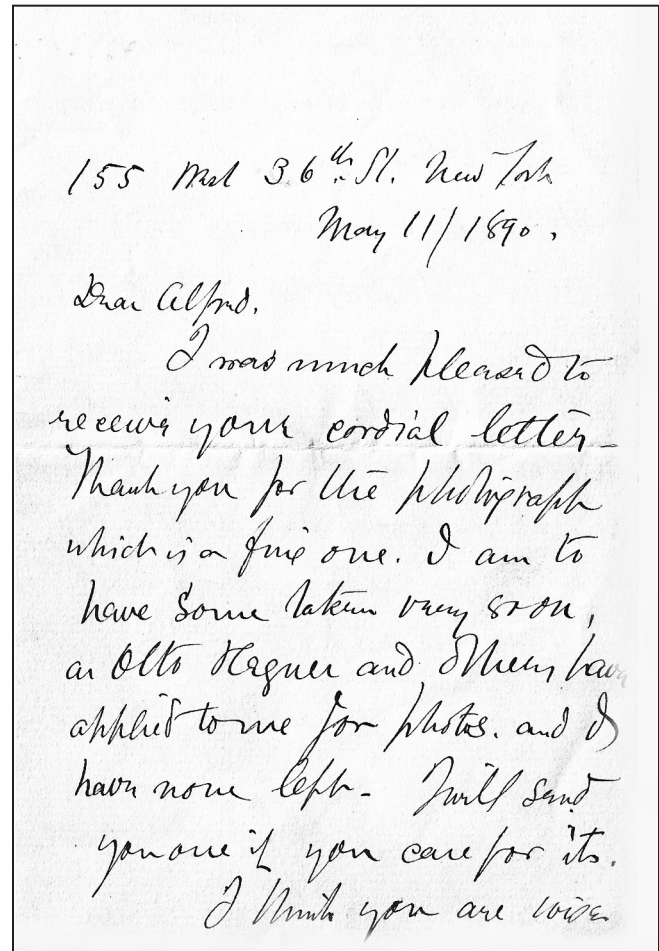 155 West 36th St. New York
May 11/1890.
Dear Alfred.
I was much pleased to
receive your cordial letter-
Thank you for the photograph
which is a fine one. I am to
have some taken very soon,
as Otto Hegner and others have
applied to me for photos. and I
have none left- I will send
you one if you care for it.
I think you are wise